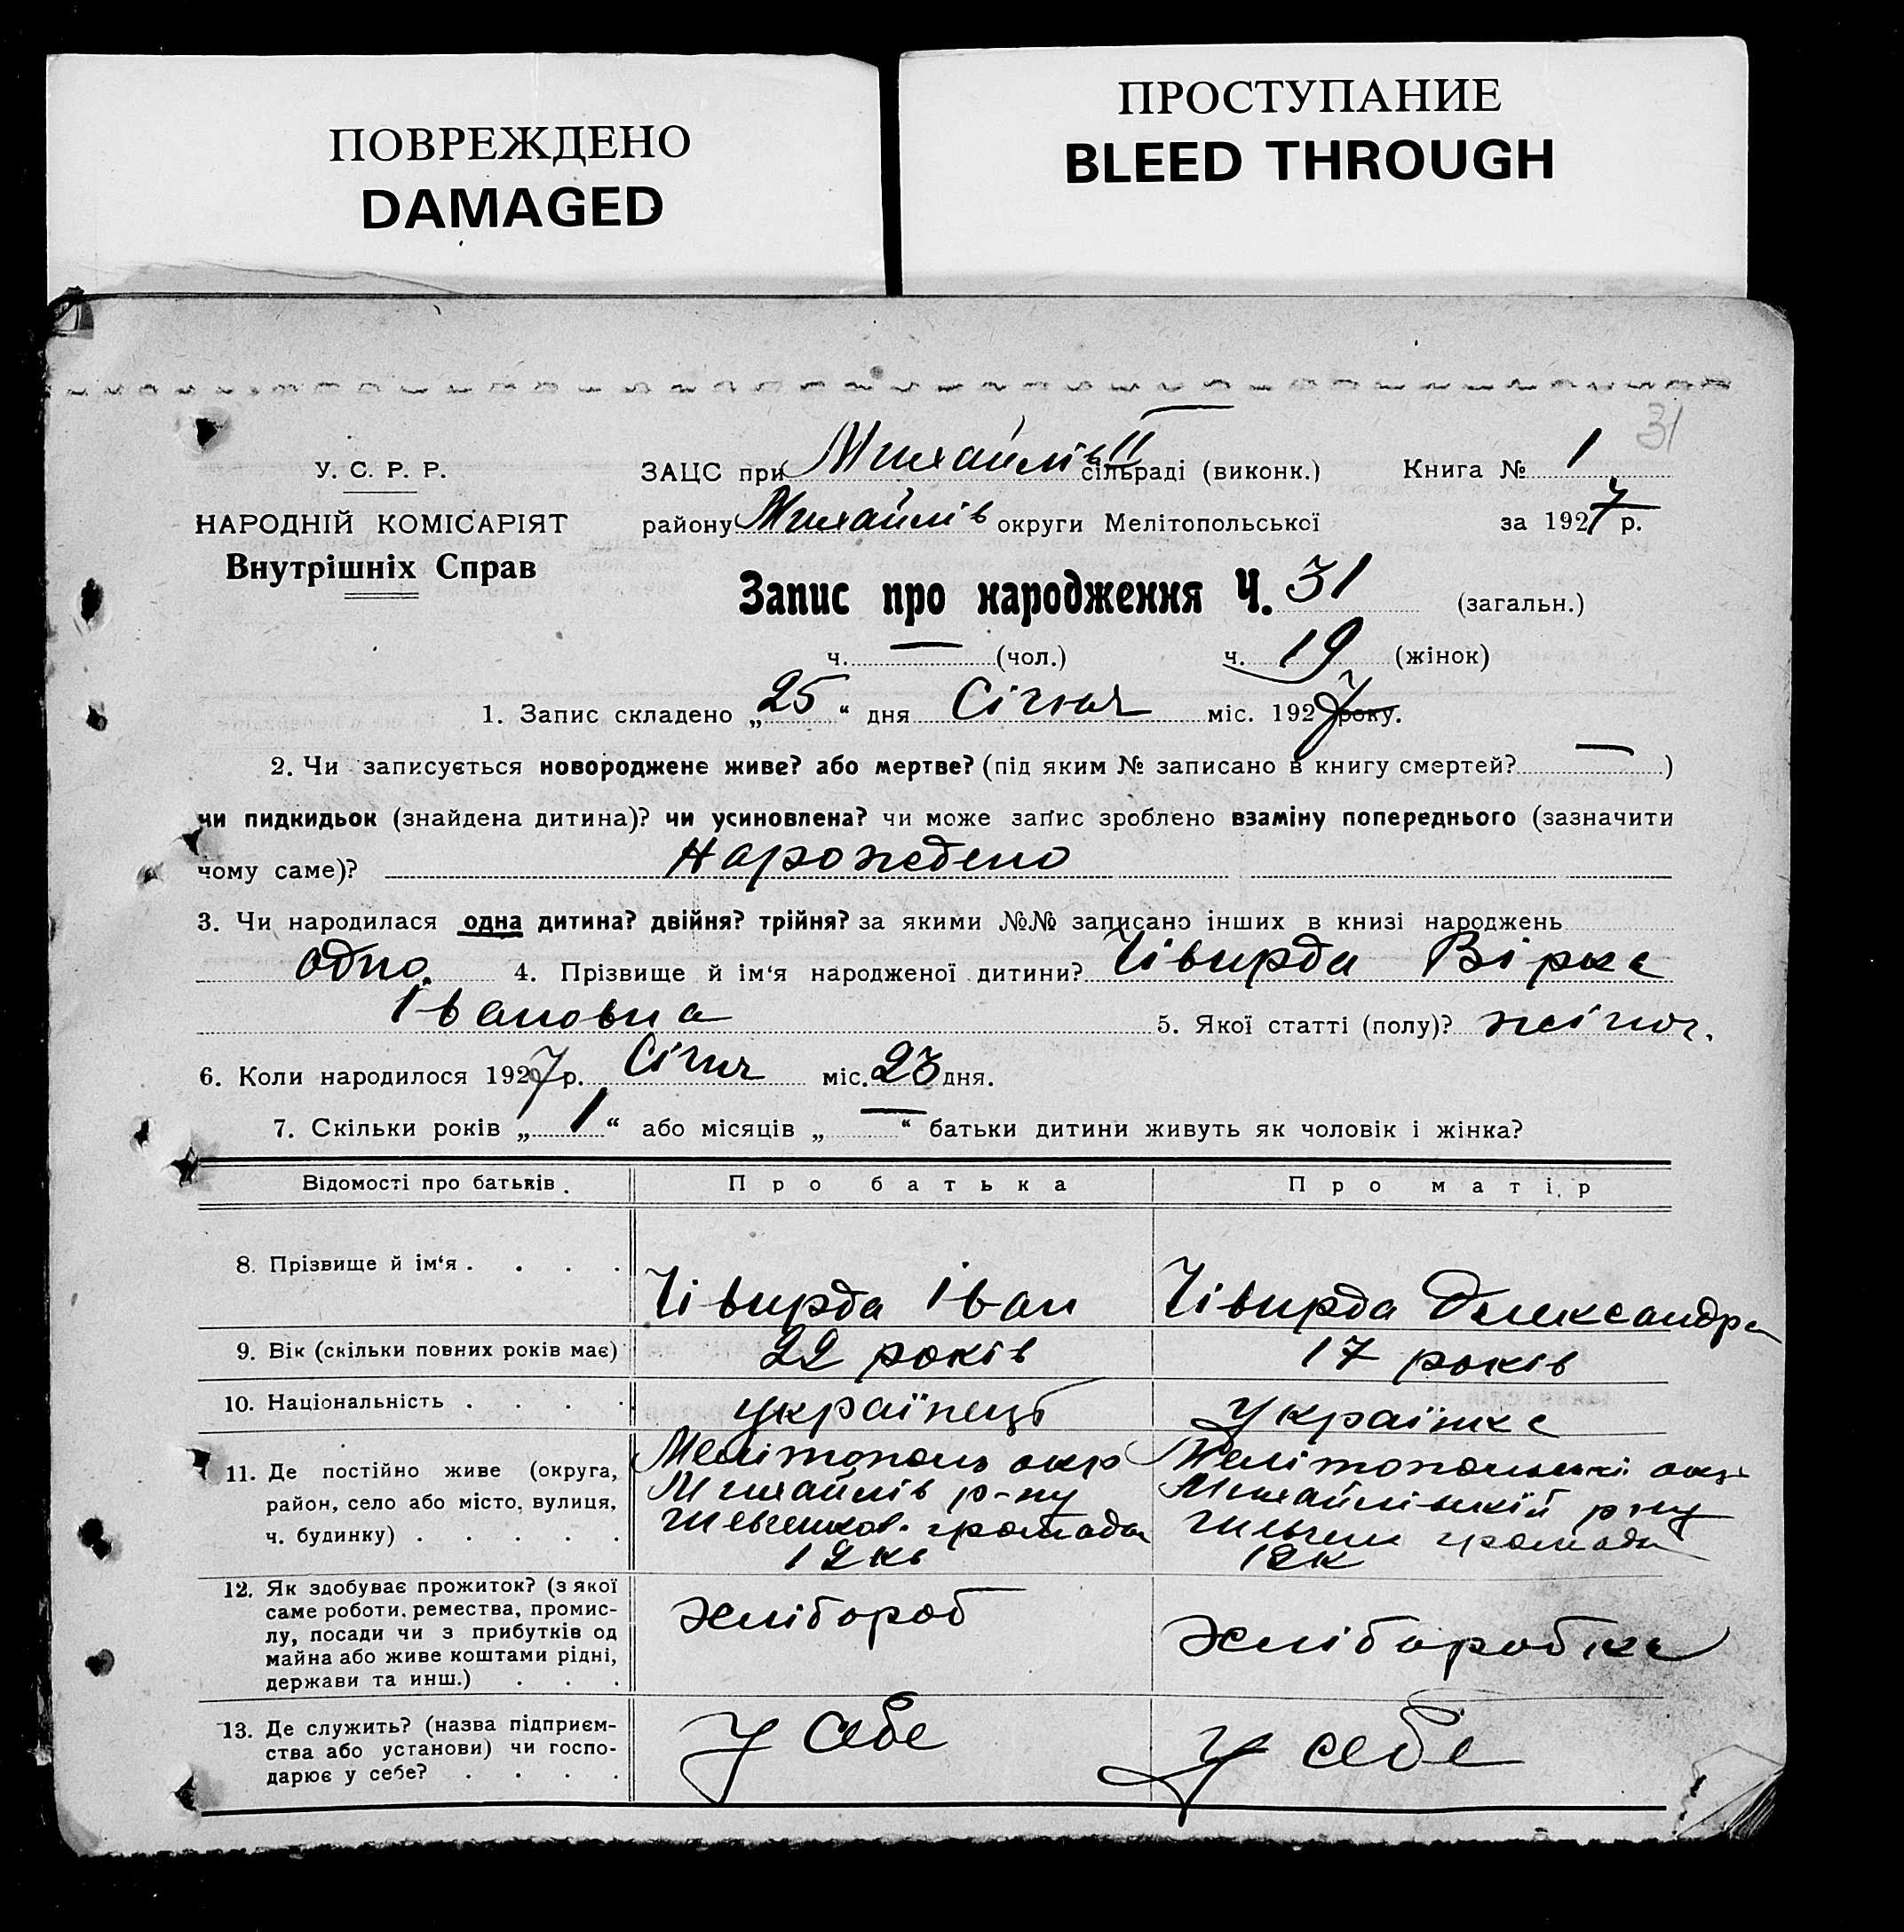 ПОВРЕЖДЕНО
DAMAGED
ПРОСТУПАНИЕ
BLEED THROUGH
31
У. С. Р. Р.
НАРОДНІЙ КОМІСАРІЯТ
Внутрішніх Справ
ЗАЦС при Михайлів II сільраді (виконк.) Книга № 1
району Михайлів округи Мелітопольської за 1927 р.
Запис про народження Ч. 31 (загальн.)
ч. — (чол.) ч. 19 (жінок)
1. Запис складено „25“ дня Січня міс. 1927 року.
2. Чи записується новороджене живе? або мертве? (під яким № записано в книгу смертей? — )
чи пидкидьок (знайдена дитина)? чи усиновлена? чи може запис зроблено взаміну попереднього (зазначити
чому саме)? Нарождено
3. Чи народилася одна дитина? двійня? трійня? за якими №№ записано інших в книзі народжень
одно. 4. Прізвище й ім‘я народженої дитини? Чівирда Вірка
Івановна 5. Якої статті (полу)? жіноч.
6. Коли народилося 1927 р. Січня міс. 23 дня.
7. Скільки років „1“ або місяців „—“ батьки дитини живуть як чоловік і жінка?
Відомості про батьків. Про батька Про матір
8. Прізвище й ім‘я . . . . Чівирда Іван Чівирда Олександра
9. Вік (скільки повних років має) 22 років 17 років
10. Національність . . . . українець українка
11. Де постійно живе (округа, район, село або місто, вулиця, ч. будинку) . . . . .
Мелітополь окр
Михайлів р-ну
Шевченков. громада
12 кв
Мелітопольські окр
Михайлівській р-ну
Шевчен громада
12 к
12. Як здобуває прожиток? (з якої
саме роботи, ремества, промис-
лу, посади чи з прибутків од
майна або живе коштами рідні,
держави та инш.) . . .
хлібороб хліборобка
13. Де служить? (назва підприєм-
ства або установи) чи госпо-
дарює у себе? . . . .
у себе у себе